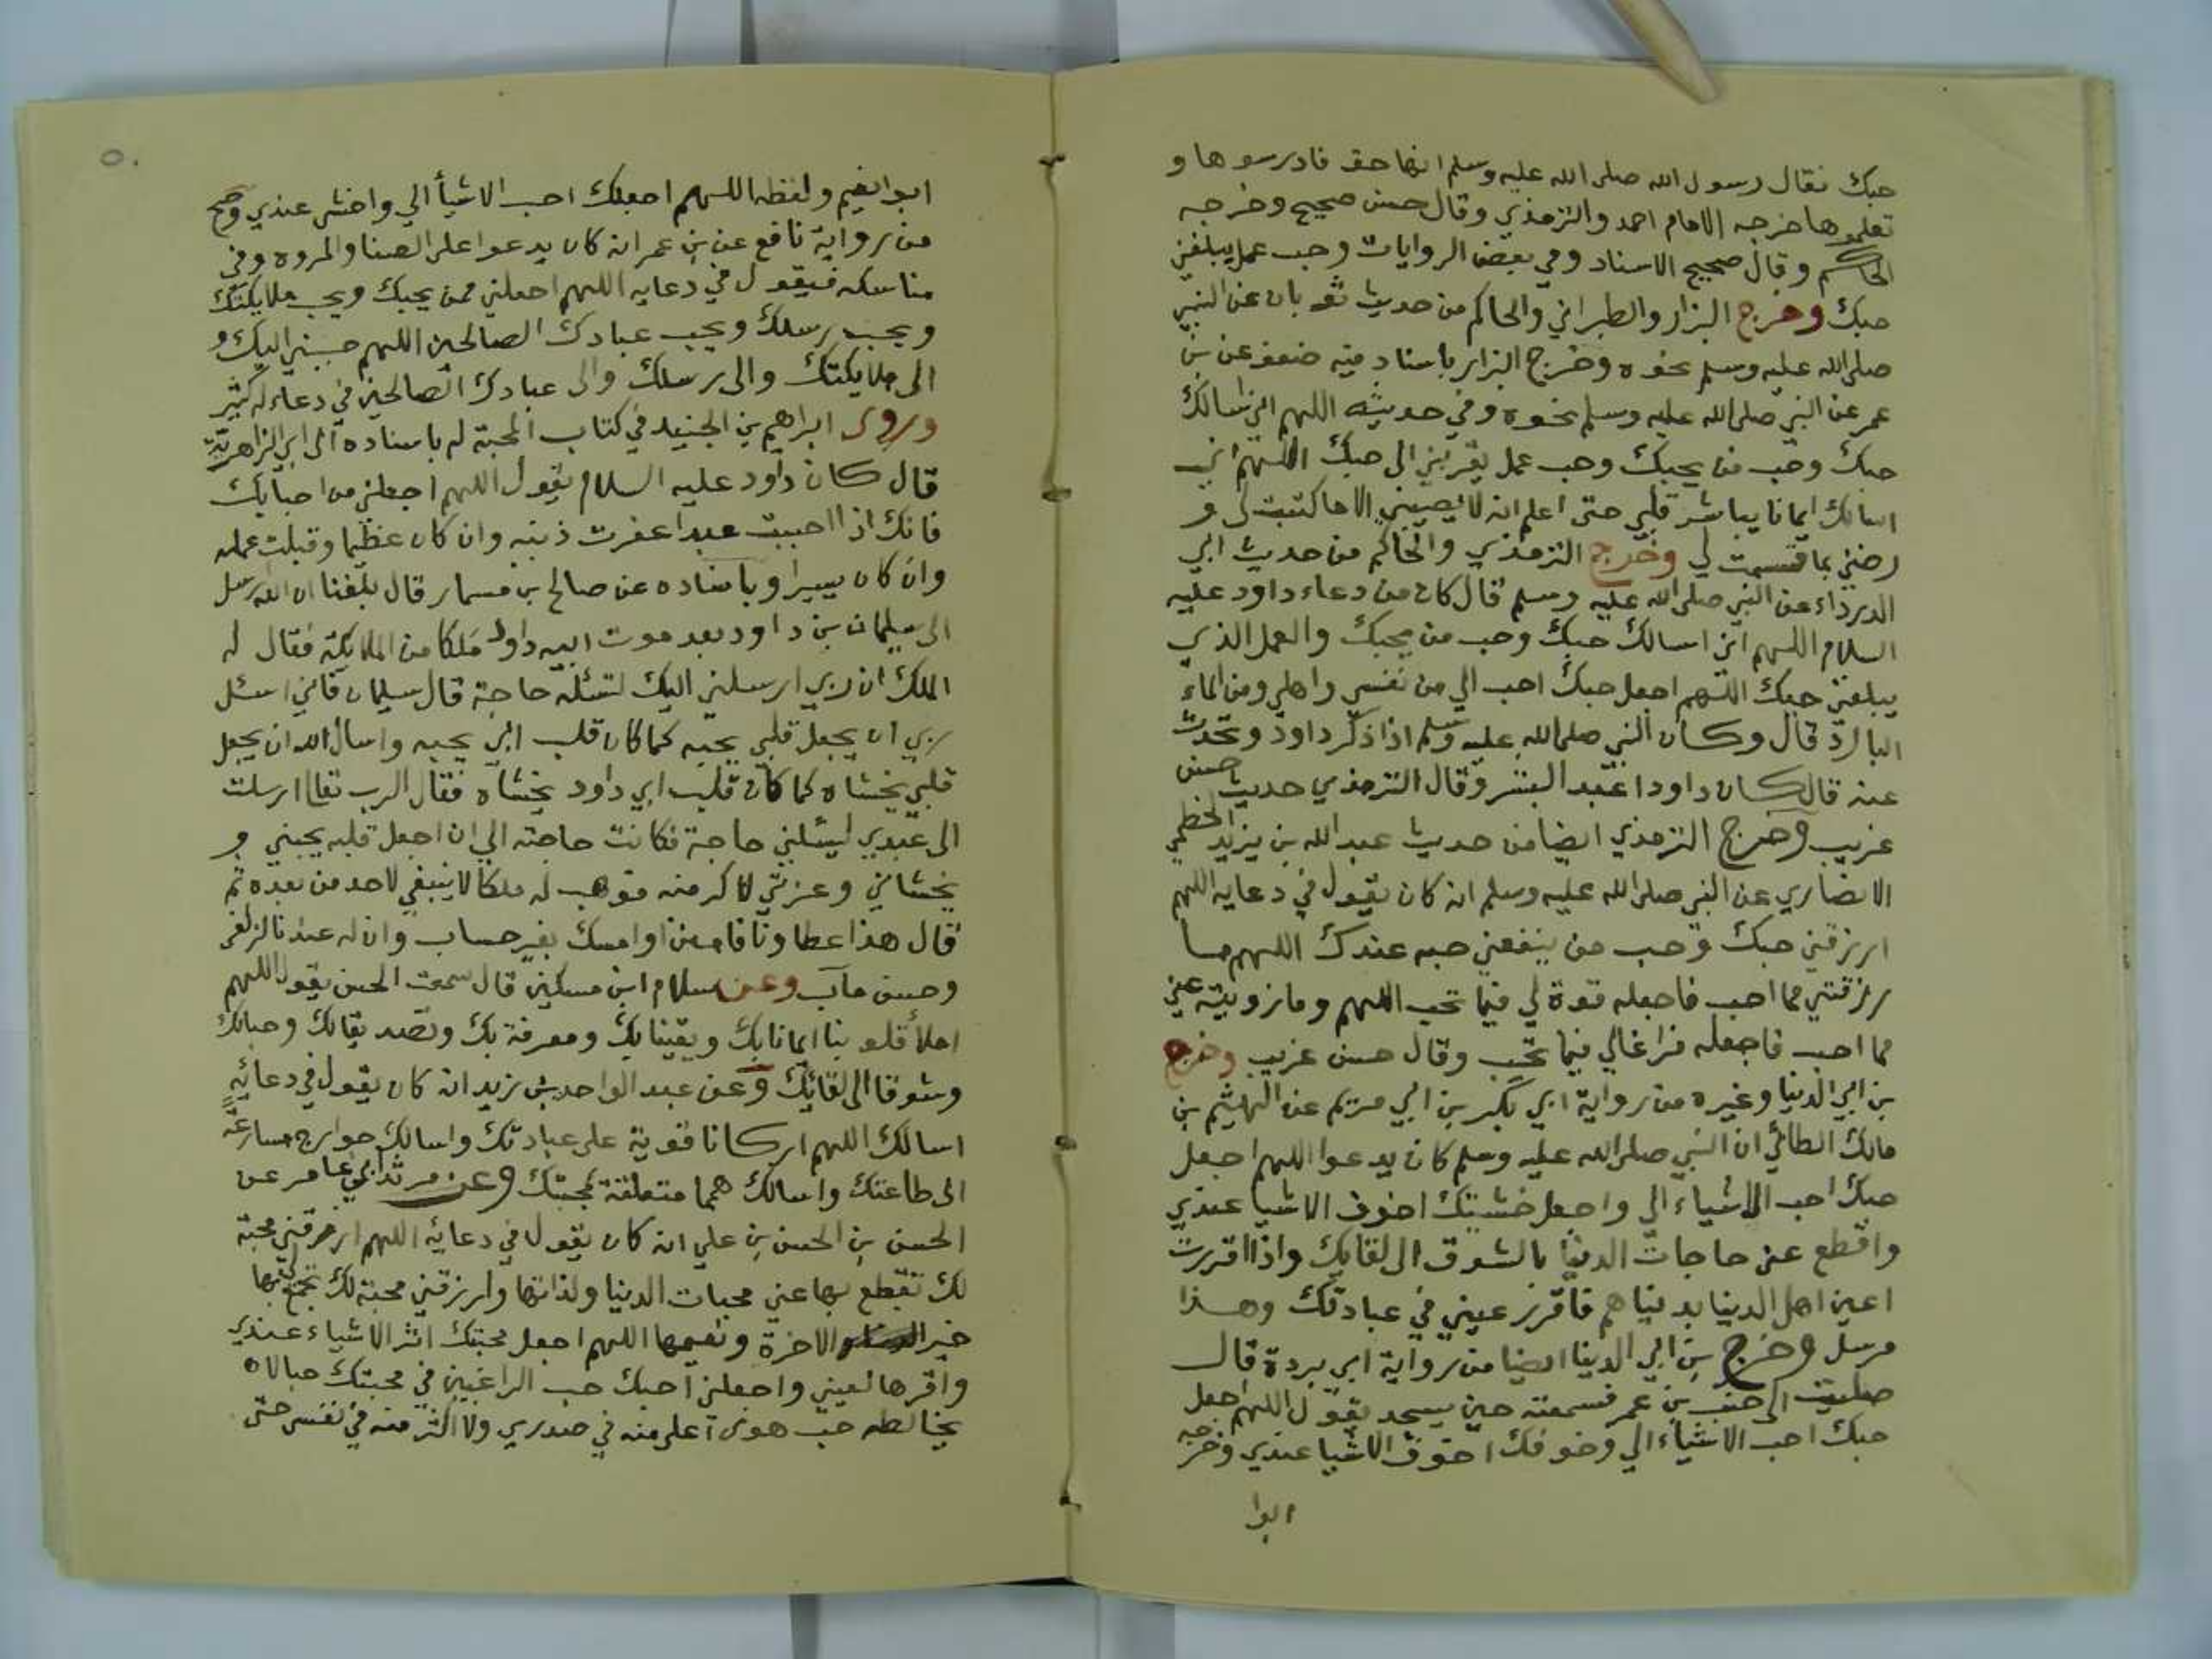 حبك فقال رسول الله صلى الله عليه وسلم انها حق فادرسوها و
تعلموها خرجه الامام احمد والترمذي وقال حسن صحيح وخرجه
الحاكم وقال صحيح الاسناد وفي بعض الروايات وحب عمل يبلغني
حبك وخرج البزار والطبراني والحاكم من حديث ثوبان عن النبي
صلى الله عليه وسلم نحوه وخرج البزار باسناد فيه ضعف عن بن
عمر عن النبي صلى الله عليه وسلم نحوه وفي حديثه اللهم اني اسالك
حبك وحب من يحبك وحب عمل يقربني الى حبك اللهم اني
اسالك ايمانا يباشر قلبي حتى اعلم انه لا يصيبني الا ما كتبت لي و
رضني بما قسمت لي وخرج الترمذي والحاكم من حديث ابي
الدرداء عن النبي صلى الله عليه وسلم قال كان من دعاء داود عليه
السلام اللهم اني اسالك حبك وحب من يحبك والعمل الذي
يبلغني حبك اللهم اجعل حبك احب الي من نفسي واهلي ومن الماء
البارد قال وكان النبي صلى الله عليه وسلم اذا ذكر داود وتحدث
عنه قال كان داود اعبد البشر وقال الترمذي حديث حسن
غريب وخرج الترمذي ايضا من حديث عبد الله بن يزيد الخطمي
الانصاري عن النبي صلى الله عليه وسلم انه كان يقول في دعايه اللهم
ارزقني حبك وحب من ينفعني حبه عندك اللهم ما
رزقتني مما احب فاجعله قوة لي فيما تحب اللهم وما زويته عني
مما احب فاجعله فراغا لي فيما تحب وقال حسن غريب وخرج
بن ابي الدنيا وغيره من رواية ابي بكر بن ابي مريم عن الهيثم بن
مالك الطائي ان النبي صلى الله عليه وسلم كان يدعوا اللهم اجعل
حبك احب الاشياء الي واجعل خشيتك اخوف الاشيا عندي
واقطع عني حاجات الدنيا بالشوق الى لقايك واذا اقررت
اعين اهل الدنيا بدنياهم فاقرر عيني في عبادتك وهذا
مرسل وخرج بن ابي الدنيا ايضا من رواية ابي بردة قال
صليت الى جنب بن عمر فسمعته حين يسجد يقول اللهم اجعل
حبك احب الاشياء الي وخوفك اخوف الاشيا عندي وخرجه
ابوا
٥٠
ابوا نعيم ولفظه اللهم اجعلك احب الاشيأ الي واخشى عندي وصح
من رواية نافع عن بن عمر انه كان يدعوا على الصفا والمروه وفي
مناسكه فيقول في دعايه اللهم اجعلني ممن يحبك ويحب ملايكتك
ويحب رسلك ويحب عبادك الصالحين اللهم حببني اليك و
الى ملايكتك والى رسلك والى عبادك الصالحين في دعاء له كثير
وروى ابراهيم بن الجنيد في كتاب المحبة له باسناده الى ابي الزاهرية
قال كان داود عليه السلام يقول اللهم اجعلني من احبابك
فانك اذا احببت عبدا غفرت ذنبه وان كان عظيما وقبلت عمله
وان كان يسيرا وباسناده عن صالح بن مسمار قال بلغنا ان الله ارسل
الى سليمان بن داود بعد موت ابيه داود ملكا من الملايكة فقال له
الملك ان ربي ارسلني اليك لتسئله حاجة قال سليمان فاني اسئل
ربي ان يجعل قلبي يحبه كما كان قلب ابي يحبه واسال الله ان يجعل
قلبي يخشاه كما كان قلب ابي داود يخشاه فقال الرب تعالى ارسلت
الى عبدي ليسئلني حاجة فكانت حاجته الي ان اجعل قلبه يحبني و
يخشاني وعزتي لاكرمنه فوهب له ملكا لا ينبغي لاحد من بعده ثم
قال هذا عطاونا فامنن او امسك بغير حساب وان له عندنا لزلفى
وحسن مآب وعن سلام ابن مسكين قال سمعت الحسن يقول اللهم
املأ قلوبنا ايمانا بك ويقينا بك ومعرفة بك وتصديقا لك وحبا لك
وشوقا الى لقائك وعن عبد الواحد بن زيد انه كان يقول في دعائه
اسالك اللهم اركانا قوية على عبادتك واسالك جوارح مسارعة
الى طاعتك واسالك همما متعلقة بمحبتك وعن مرثد ابي عامر عن
الحسن بن الحسن بن علي انه كان يقول في دعائه اللهم ارزقني محبة
لك تقطع بها عني محبات الدنيا ولذاتها وارزقني محبة لك تجمع لي بها
خير الاخرة ونعيمها اللهم اجعل محبتك اثر الاشياء عندي
واقرها لعيني واجعلني احبك حب الراغبين في محبتك حبا لا
يخالطه حب هوى اعلى منه في صدري ولا اكثر منه في نفسي حتى